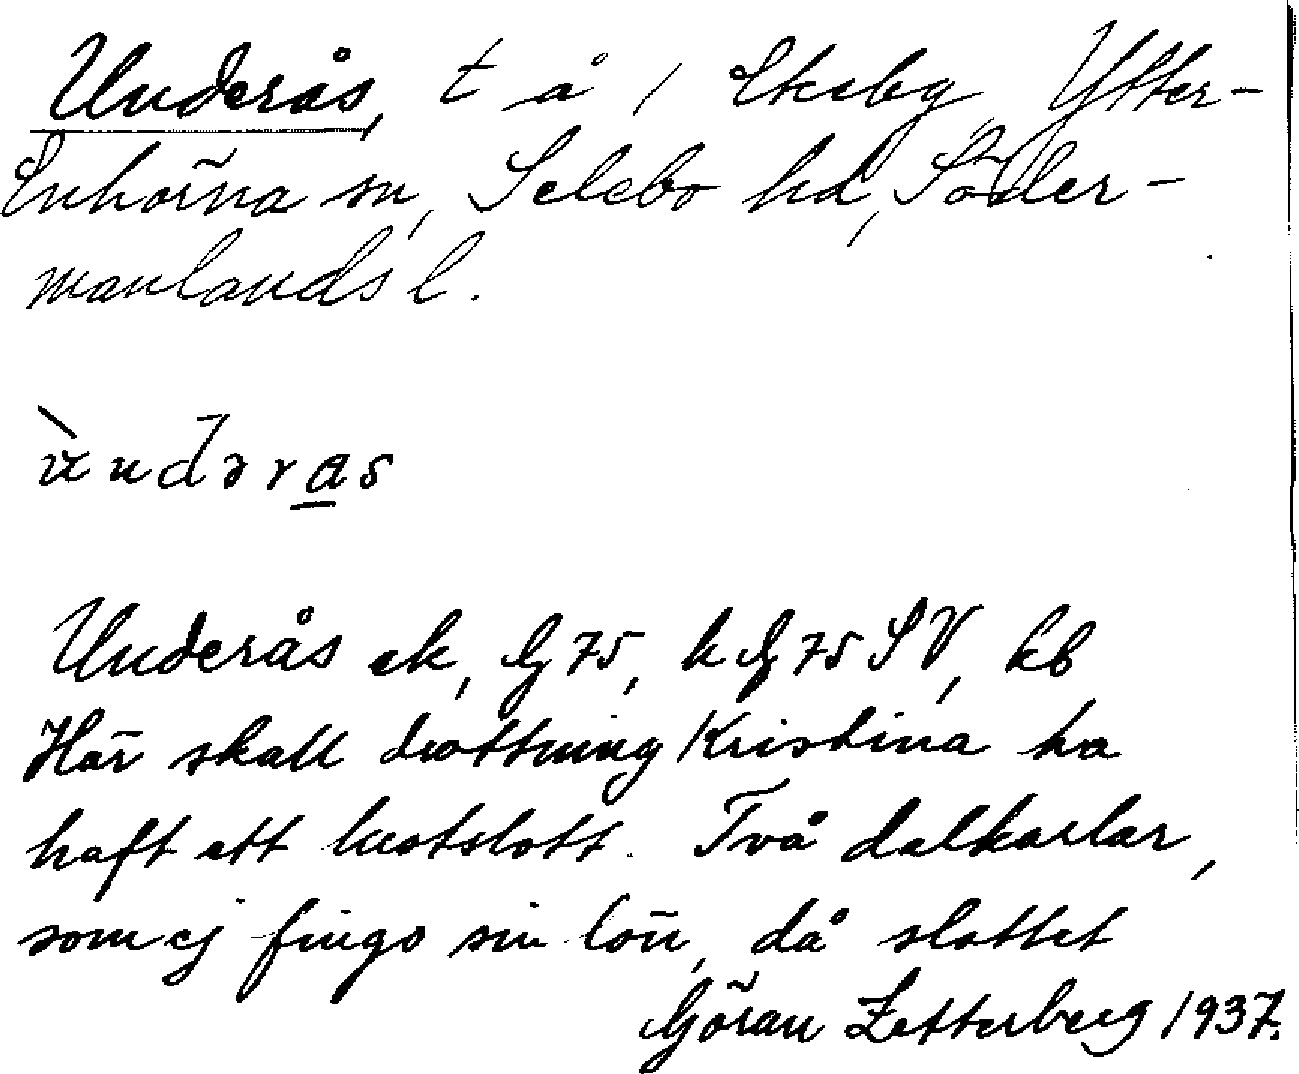 Underås, t å / Ekeby, Ytter-
Enhörna sn, Selebo hd, Söder-
manlands l.
ùndəras
Underås ek, G 75, k G 75 SV, kb
Här skall drottning Kristina ha
haft ett lustslott. Två dalkarlar,
som ej fingo sin lön, då slottet
Göran Zetterberg 1937.